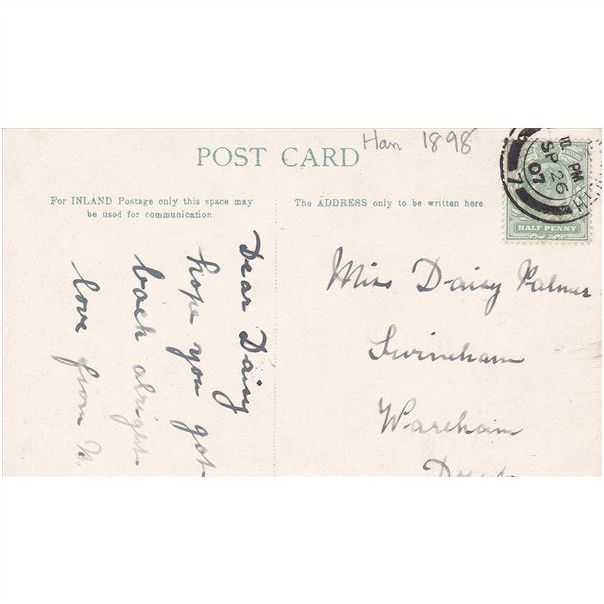 Han 1898
POST CARD
For INLAND Postage only this space may
be used for communication.
The ADDRESS only to be written here.
10. PM
SP 26
07
7
HALF PENNY
Dear Daisy
hope you got
back alright
love from
Miss Daisy Palmer
Swineham
Wareham